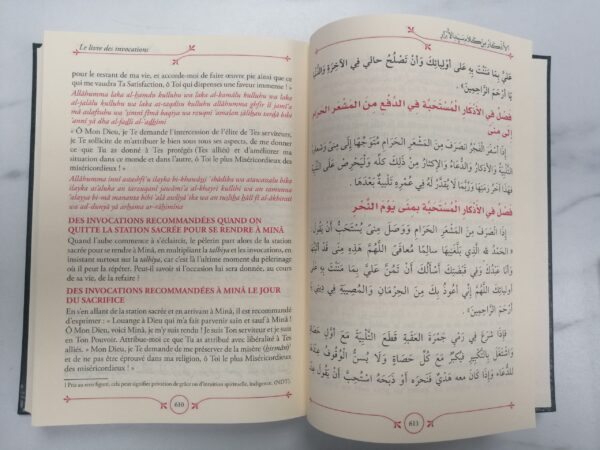 Le livre des invocations
pour le restant de ma vie, et accorde-moi de faire œuvre pie ainsi que ce
qui me vaudra Ta Satisfaction, ô Toi qui dispenses une faveur immense ! »
Allâhumma laka al-ḥamdu kulluhu wa laka al-kamâlu kulluhu wa laka
al-jalâlu kulluhu wa laka at-taqdîsu kulluhu
« Ô Mon Dieu, je Te demande l'intercession de l'élite de Tes serviteurs,
je Te sollicite de m'attribuer le bien sous tous ses aspects, de me donner
ce que tu as donné à Tes protégés (Tes alliés) et d'améliorer ma
situation dans ce monde et dans l'autre, ô Toi le plus Miséricordieux des
miséricordieux ! »
DES INVOCATIONS RECOMMANDÉES QUAND ON
QUITTE LA STATION SACRÉE POUR SE RENDRE À MINÂ
Quand l'aube commence à s'éclaircir, le pèlerin part alors de la station
sacrée pour se rendre à Minâ, en multipliant la talbiya et les invocations, en
insistant surtout sur la talbiya, car c'est là l'ultime moment du pèlerinage
où il peut la répéter. Peut-il savoir si l'occasion lui sera donnée, au cours
de sa vie, de la refaire ?
DES INVOCATIONS RECOMMANDÉES À MINÂ LE JOUR
DU SACRIFICE
En s'en allant de la station sacrée et en arrivant à Minâ, il est recommandé
d'exprimer : « Louange à Dieu qui m'a fait parvenir sain et sauf à Minâ !
Ô Mon Dieu, voici Minâ, je m'y suis rendu ! Je suis Ton serviteur et je suis
en Ton Pouvoir. Attribue-moi ce que Tu as attribué avec libéralité à Tes
alliés. « Mon Dieu, je Te demande de me préserver de la misère (ḥermân)¹
et de ne pas être éprouvé dans ma religion, ô Toi le plus Miséricordieux des
miséricordieux ! »
1 Pris au sens figuré, cela peut signifier privation de grâce ou d'intuition spirituelle, indigence. (NDT).
610
الأذكار من كلام سيد الأبرار
عَلَيَّ بِمَا مَنَنْتَ بِهِ عَلَى أَوْلِيَائِكَ وَأَنْ تُصْلِحَ حَالِي فِي الآخِرَةِ وَالدُّنْيَا
يَا أَرْحَمَ الرَّاحِمِينَ».
فَصْلٌ فِي الأَذْكَارِ الْمُسْتَحَبَّةِ فِي الدَّفْعِ مِنَ المَشْعَرِ الحَرَامِ
إِلَى مِنًى
إِذَا أَسْفَرَ الْفَجْرُ انْصَرَفَ مِنَ الْمَشْعَرِ الْحَرَامِ مُتَوَجِّهًا إِلَى مِنًى وَشِعَارُهُ
التَّلْبِيَةُ وَالأَذْكَارُ وَالدُّعَاءُ وَالإِكْثَارُ مِنْ ذَلِكَ كُلِّهِ وَلْيَحْرِصْ عَلَى التَّلْبِيَةِ
فَهَذَا آخِرُ زَمَنِهَا وَرُبَّمَا لَا يُقَدَّرُ لَهُ فِي عُمُرِهِ تَلْبِيَةٌ بَعْدَهَا.
فَصْلٌ فِي الأَذْكَارِ الْمُسْتَحَبَّةِ بِمِنًى يَوْمَ النَّحْرِ
إِذَا انْصَرَفَ مِنَ الْمَشْعَرِ الْحَرَامِ وَوَصَلَ مِنًى يُسْتَحَبُّ أَنْ يَقُولَ:
«الْحَمْدُ للهِ الَّذِي بَلَّغَنِيهَا سَالِمًا مُعَافًى اللَّهُمَّ هَذِهِ مِنًى قَدْ أَتَيْتُهَا
وَأَنَا عَبْدُكَ وَفِي قَبْضَتِكَ أَسْأَلُكَ أَنْ تَمُنَّ عَلَيَّ بِمَا مَنَنْتَ بِهِ عَلَى
أَوْلِيَائِكَ اللَّهُمَّ إِنِّي أَعُوذُ بِكَ مِنَ الْحِرْمَانِ وَالْمُصِيبَةِ فِي دِينِي يَا
أَرْحَمَ الرَّاحِمِينَ».
فَإِذَا شَرَعَ فِي رَمْيِ جَمْرَةِ الْعَقَبَةِ قَطَعَ التَّلْبِيَةَ مَعَ أَوَّلِ حَصَاةٍ
وَاشْتَغَلَ بِالتَّكْبِيرِ فَيُكَبِّرُ مَعَ كُلِّ حَصَاةٍ وَلَا يُسَنُّ الْوُقُوفُ عِنْدَهَا
لِلدُّعَاءِ وَإِذَا كَانَ مَعَهُ هَدْيٌ فَنَحَرَهُ أَوْ ذَبَحَهُ اسْتُحِبَّ أَنْ يَقُولَ عِنْدَ
611